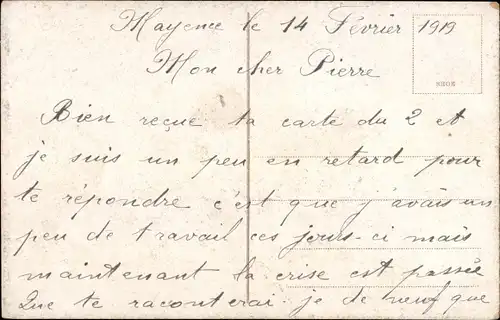 Mayence le 14 Février 1919
Mon cher Pierre
Bien reçue ta carte du 2 et
je suis un peu en retard pour
te répondre c'est que j'avais un
peu de travail ces jours-ci mais
maintenant la crise est passée
Que te raconterai-je de neuf que